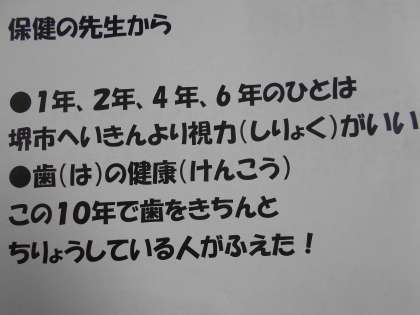 保健の先生から
●1年、2年、4年、6年のひとは
堺市へいきんより視力(しりょく)がいい
●歯(は)の健康(けんこう)
この10年で歯をきちんと
ちりょうしている人がふえた！